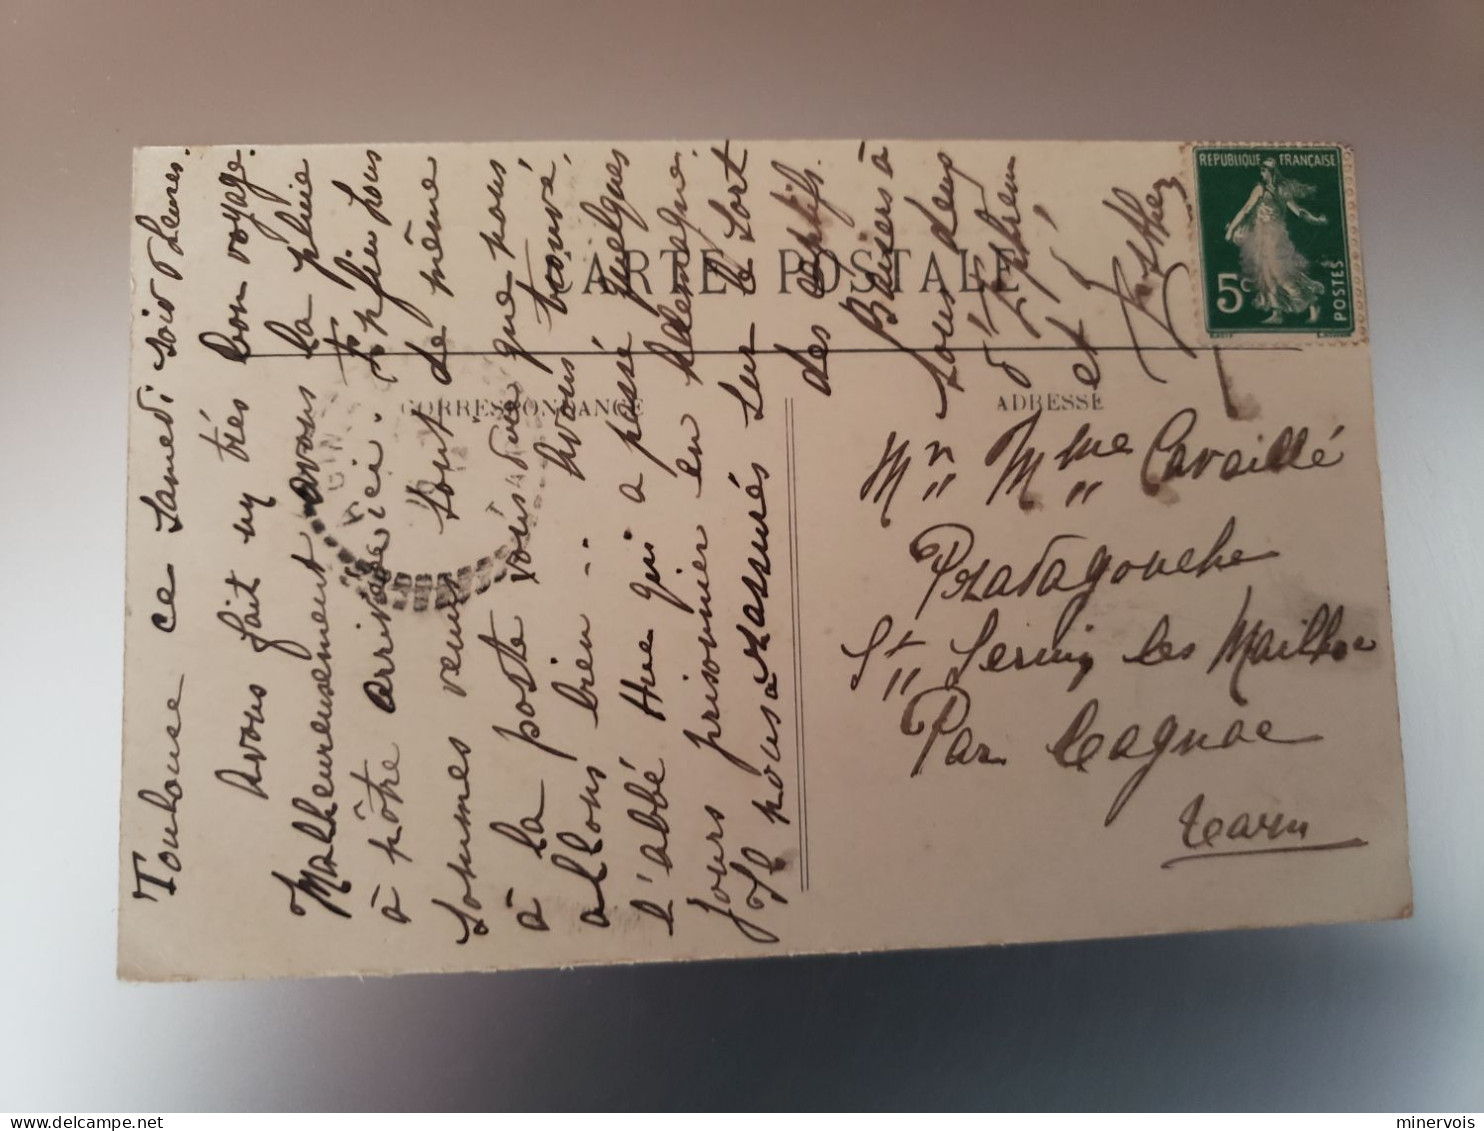 CARTE POSTALE
CORRESPONDANCE
ADRESSE
REPUBLIQUE FRANÇAISE
5c
POSTES
Toulouse ce Samedi soir
Avons fait un très bon voyage.
Malheureusement avons la pluie
à nôtre arrivée ici.
sommes venus tout de même
à la poste vous dire que nous
allons bien... Avons trouvé
l'abbé Hue qui a passé quelques
jours prisonnier en Allemagne.
Il nous a rassurés sur le sort
des captifs.
Baisers à
tous deux
d'Ephrem
et
Mr Mme Cavaillé
Pratagouche
St Sernin les Mailhoc
Par Cagnac
Tarn
minervois